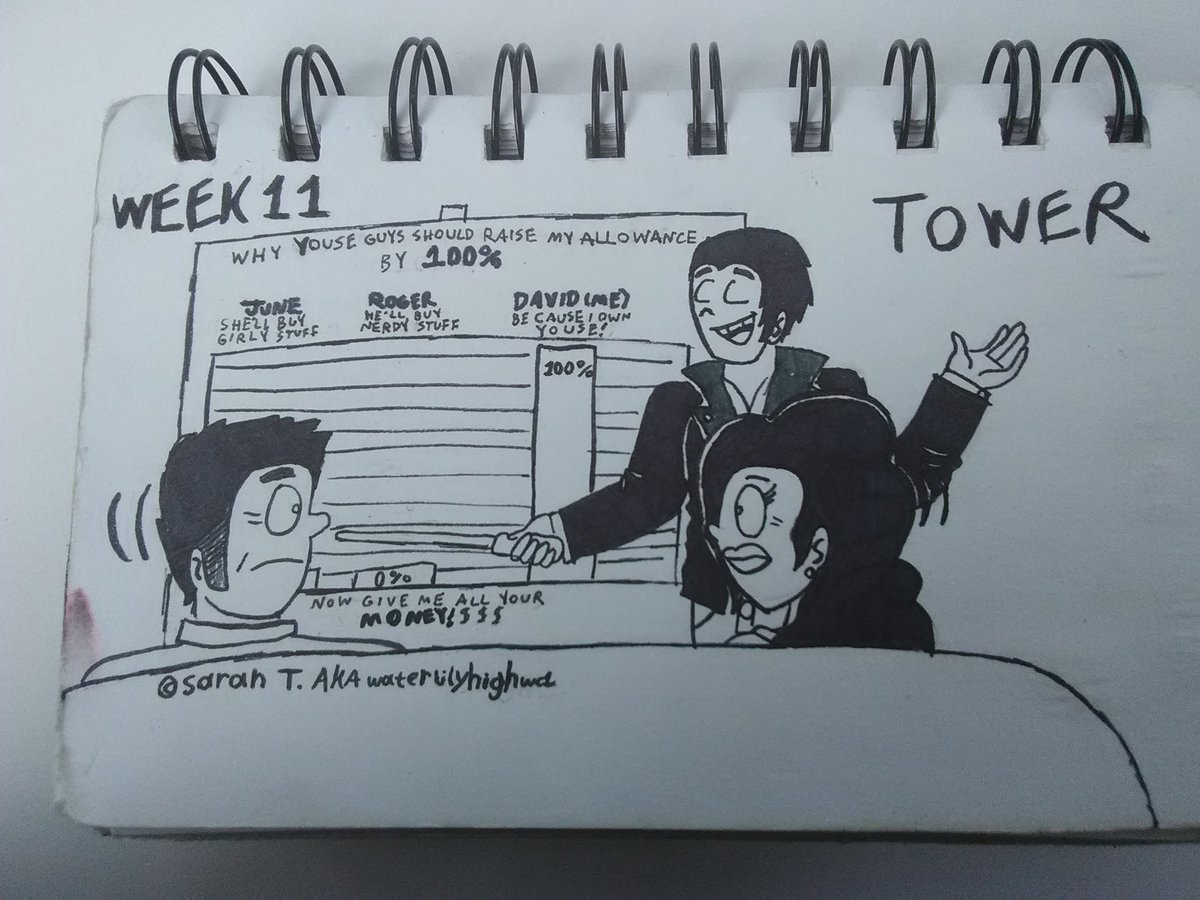 WEEK 11
TOWER
WHY YOUSE GUYS SHOULD RAISE MY ALLOWANCE
BY 100%
JUNE
SHE'LL BUY
GIRLY STUFF
ROGER
HE'LL BUY
NERDY STUFF
DAVID (ME)
BECAUSE I OWN
YOUSE!
100%
0%
NOW GIVE ME ALL YOUR
MONEY!$$$
©sarah T. AKA waterlilyhighwd